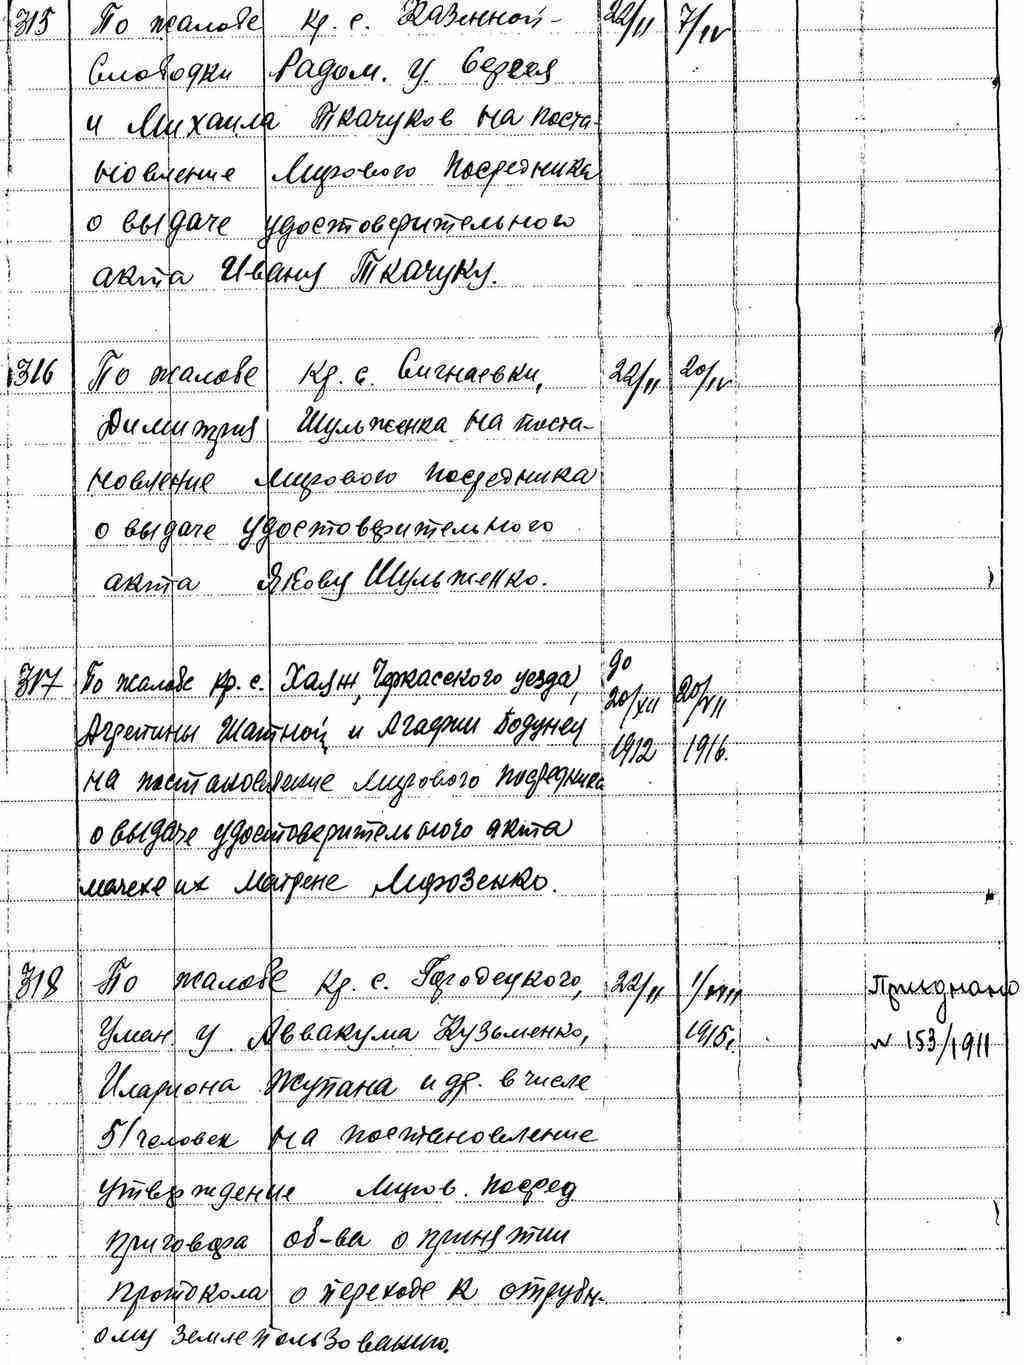 315 По жалобе кр. с. Казенной- 22/II 7/IV
Слободки Радом. у. Сергея
и Михаила Ткачуков на поста-
новление Мирового Посредника
о выдаче удостоверительного
акта Ивану Ткачуку.
316 По жалобе кр. с. Сигнаевки, 22/II 20/IV
Димитрия Шульженка на поста-
новление мирового посредника
о выдаче удостоверительного
акта Якову Шульженко.
317 По жалобе кр. с. Хаяж, Черкасского уезда, до 20/XII 1912 20/VII 1916.
Агрепины Шатной и Агафии Бодунец
на постановление мирового посредника
о выдаче удостоверительного акта
мачехе их Матрене Мирозенко.
318 По жалобе кр. с. Городецкого, 22/II 1/VIII 1915г. Приднано
Уман. у. Аввакума Кузьменко, № 153/1911
Илариона Жупана и др. в числе
51 человек на постановление
утверждение Миров. посред
приговора об-ва о принятии
протокола о переходе к отрубн-
ому землепользованию.